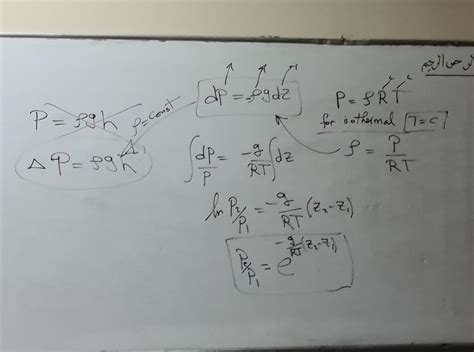 P = ρgh
ρ=const
Δ P = ρg h
dP = ρg dz
P = ρ R T
for isothermal T=c
ρ = P/RT
∫ dP/P = -g/RT ∫ dz
ln P₂/P₁ = -g/RT (Z₂-Z₁)
P₂/P₁ = e^(-g/RT (Z₂-Z₁))